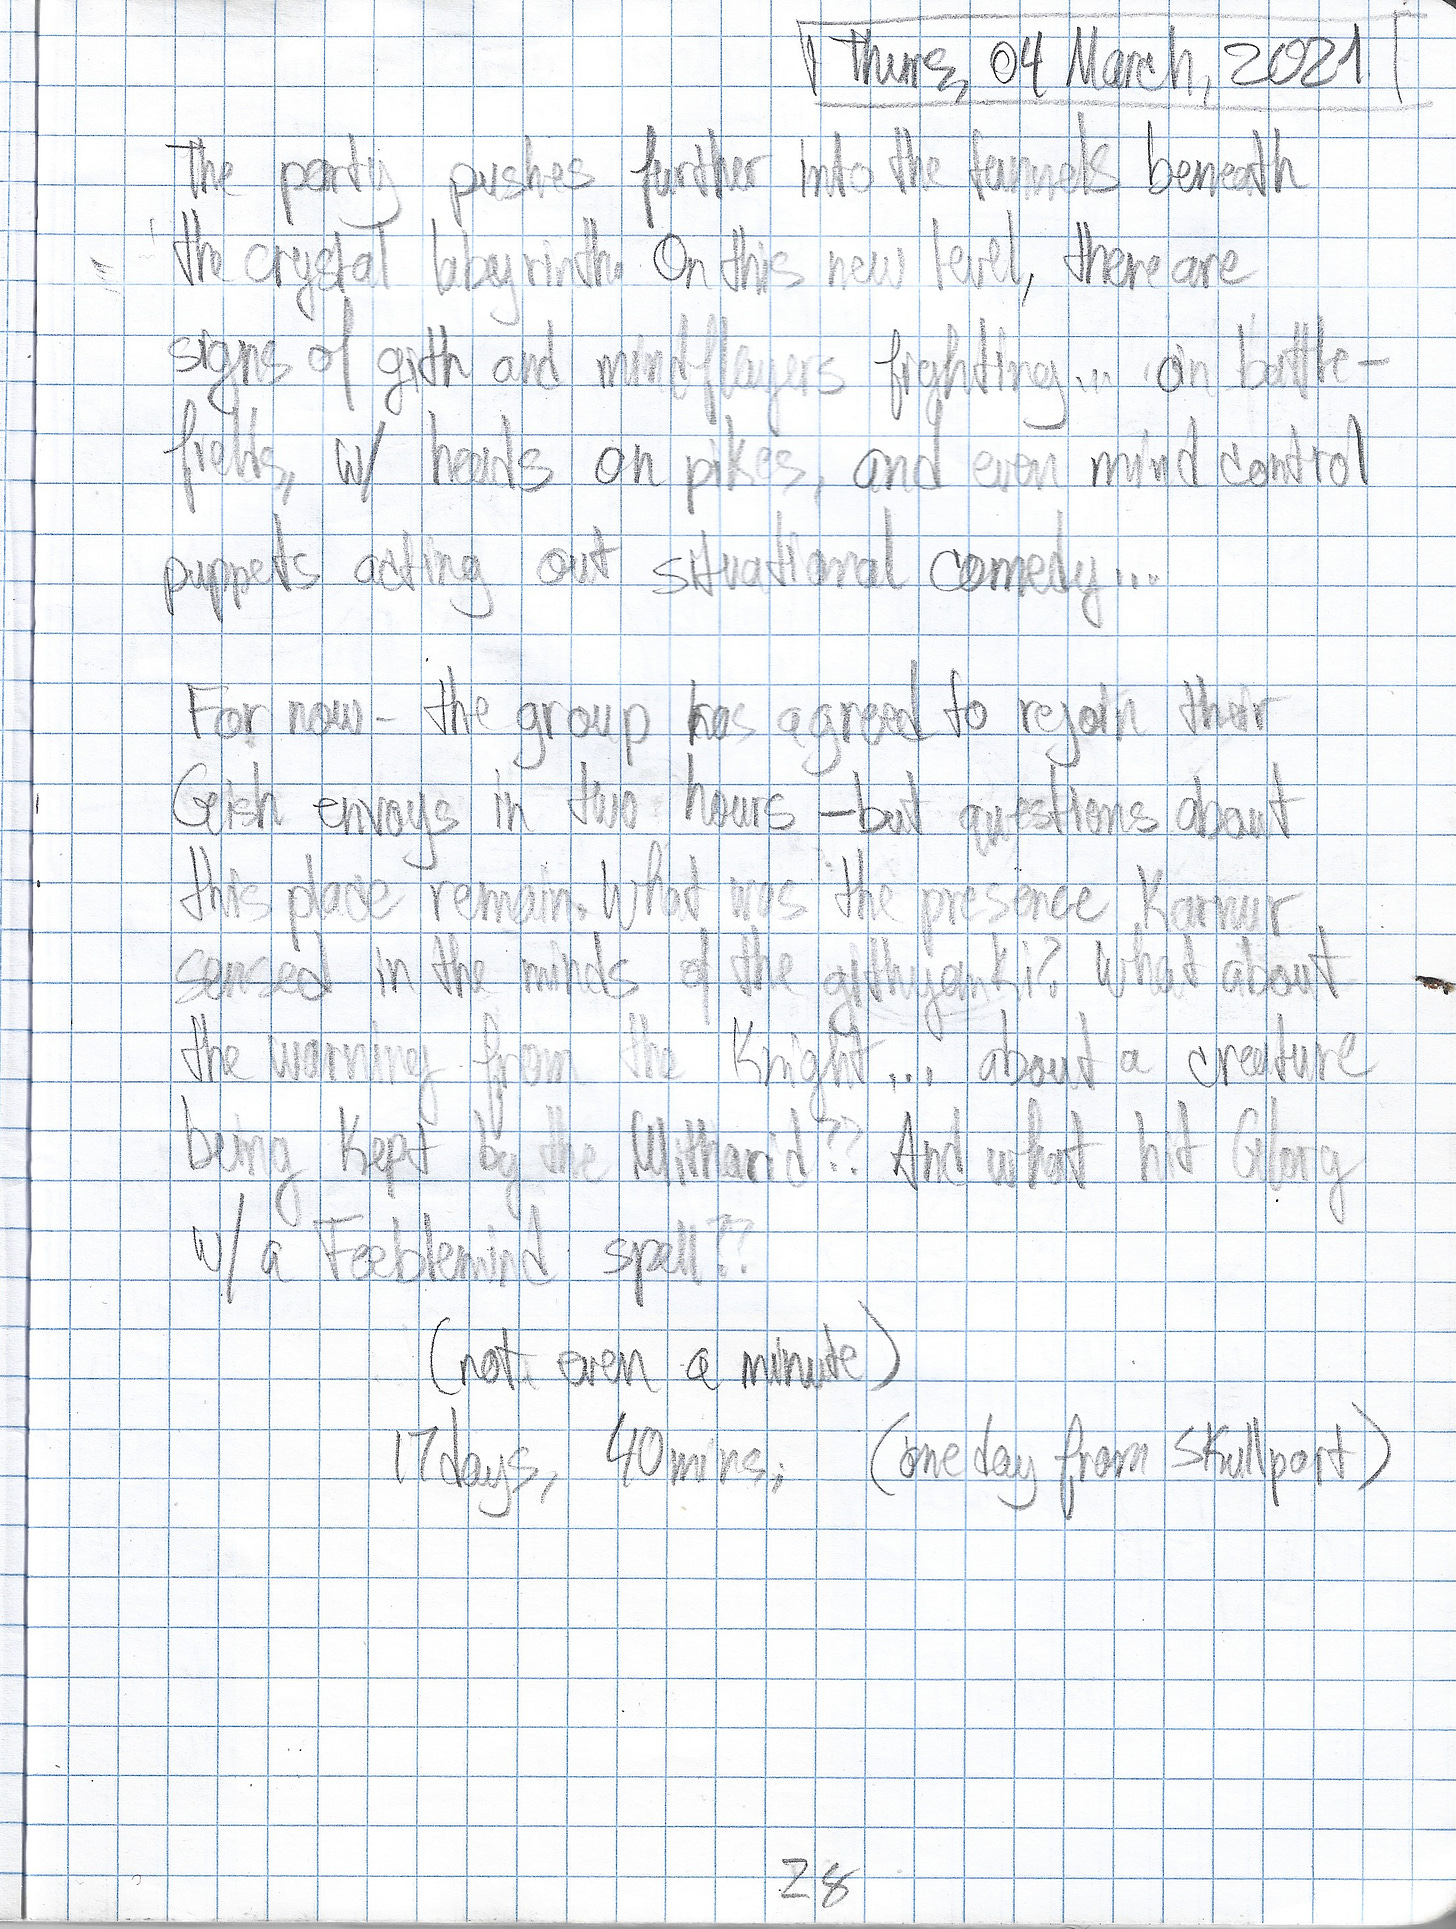 Thurs, 04 March, 2021
The party pushes further into the tunnels beneath
the crystal labyrinth. On this new level, there are
signs of gith and mindflayers fighting... on battle-
fields, w/ heads on pikes, and even mind control
puppets acting out situational comedy...
For now - the group has agreed to rejoin their
Geish envoys in two hours - but questions about
this place remain. What was the presence Karnur
sensed in the minds of the githyanki? What about
the warning from the Knight... about a creature
being kept by the Illitharid?? And what hit Glorg
w/ a Feeblemind spell??
(not even a minute)
17 days, 40 mins; (one day from Skullport)
28